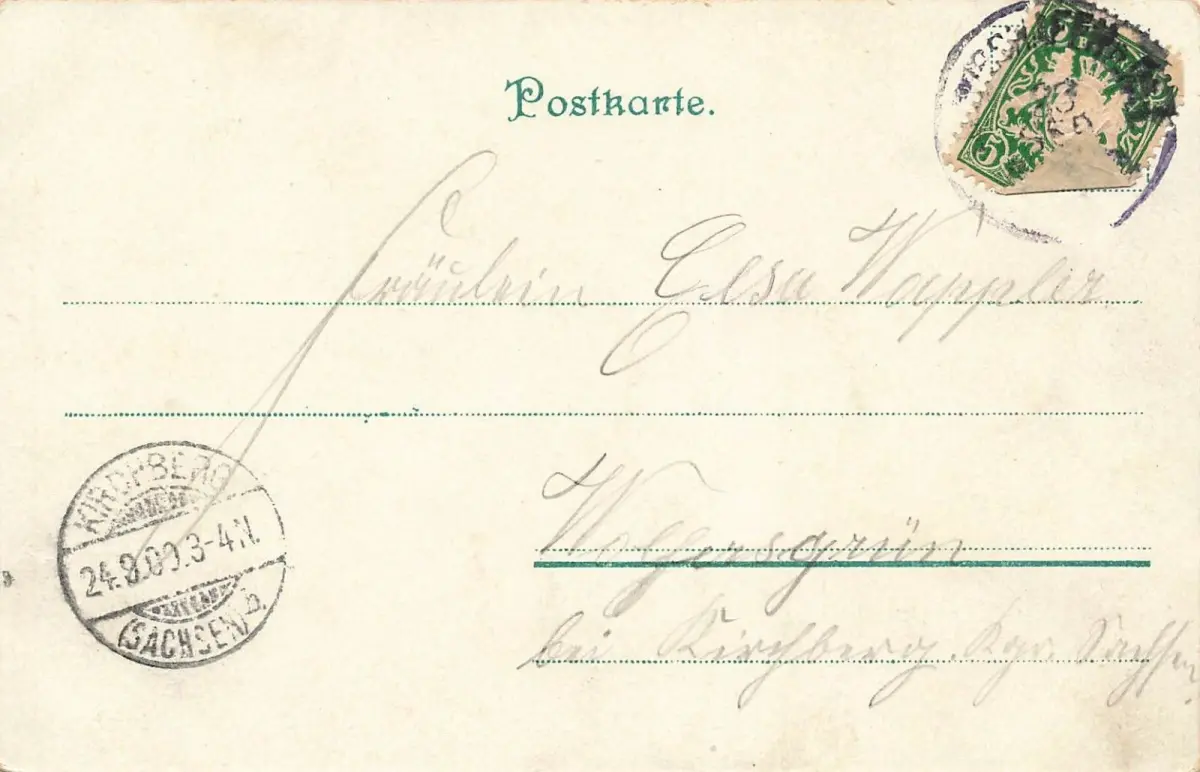 Postkarte.
5
Fräulein Elsa Wappler
Wolfersgrün
bei Kirchberg. Kgr. Sachsen
KIRCHBERG
24.8.00.3-4.N.
(SACHSEN) b.